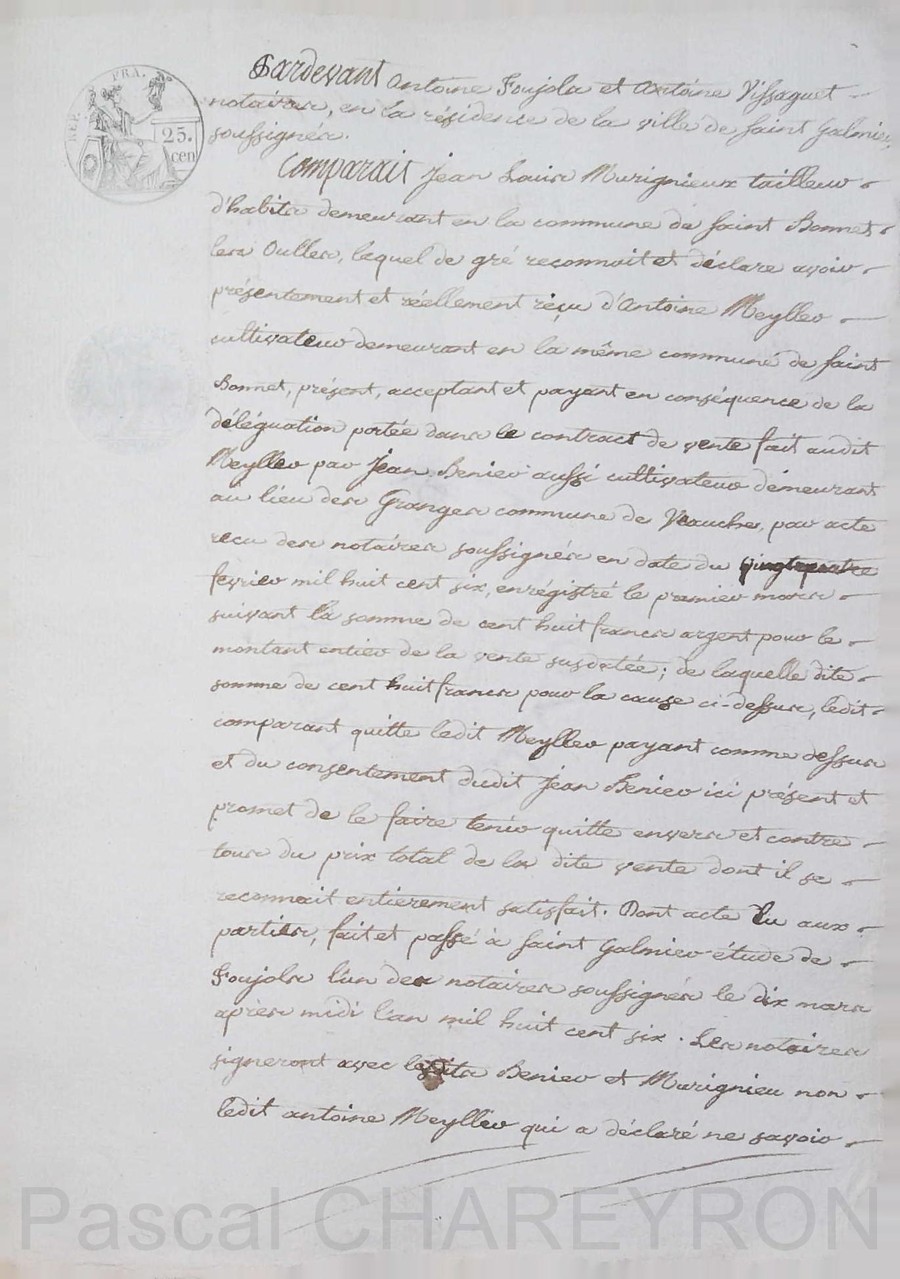 REP. FRA.
25.
cen
Pardevant Antoine Foujols et Antoine Vissaguet
notaires, en la résidence de la ville de saint Galmier,
soussignés.
Comparait Jean Louis Murignieux tailleur
d'habits demeurant en la commune de saint Bonnet
les Oulles, lequel de gré reconnait et déclare avoir
présentement et réellement reçu d'Antoine Meyller
cultivateur demeurant en la même commune de saint
Bonnet, présent, acceptant et payant en conséquence de la
déléguation portée dans le contract de vente fait audit
Meyller par Jean Benier aussi cultivateur demeurant
au lieu des Granges commune de Veauche, par acte
recu des notaires soussignés en date du vingtquatre
fevrier mil huit cent six, enrégistré le premier mars
suivant la somme de cent huit francs argent pour le
montant entier de la vente susdatée ; de laquelle dite
somme de cent huit francs pour la cause ci-dessus, ledit
comparant quitte ledit Meyller payant comme dessus
et du consentement dudit Jean Benier ici présent et
promet de le faire tenir quitte envers et contre
tous du prix total de la dite vente dont il se
reconnait entièrement satisfait. Dont acte lu aux
parties, fait et passé à saint Galmier étude de
Foujols l'un des notaires soussignés le dix mars
après midi l'an mil huit cent six. Les notaires
signeront avec lesdits Benier et Murignieu non
ledit antoine Meyller qui a déclaré ne savoir
Pascal CHAREYRON